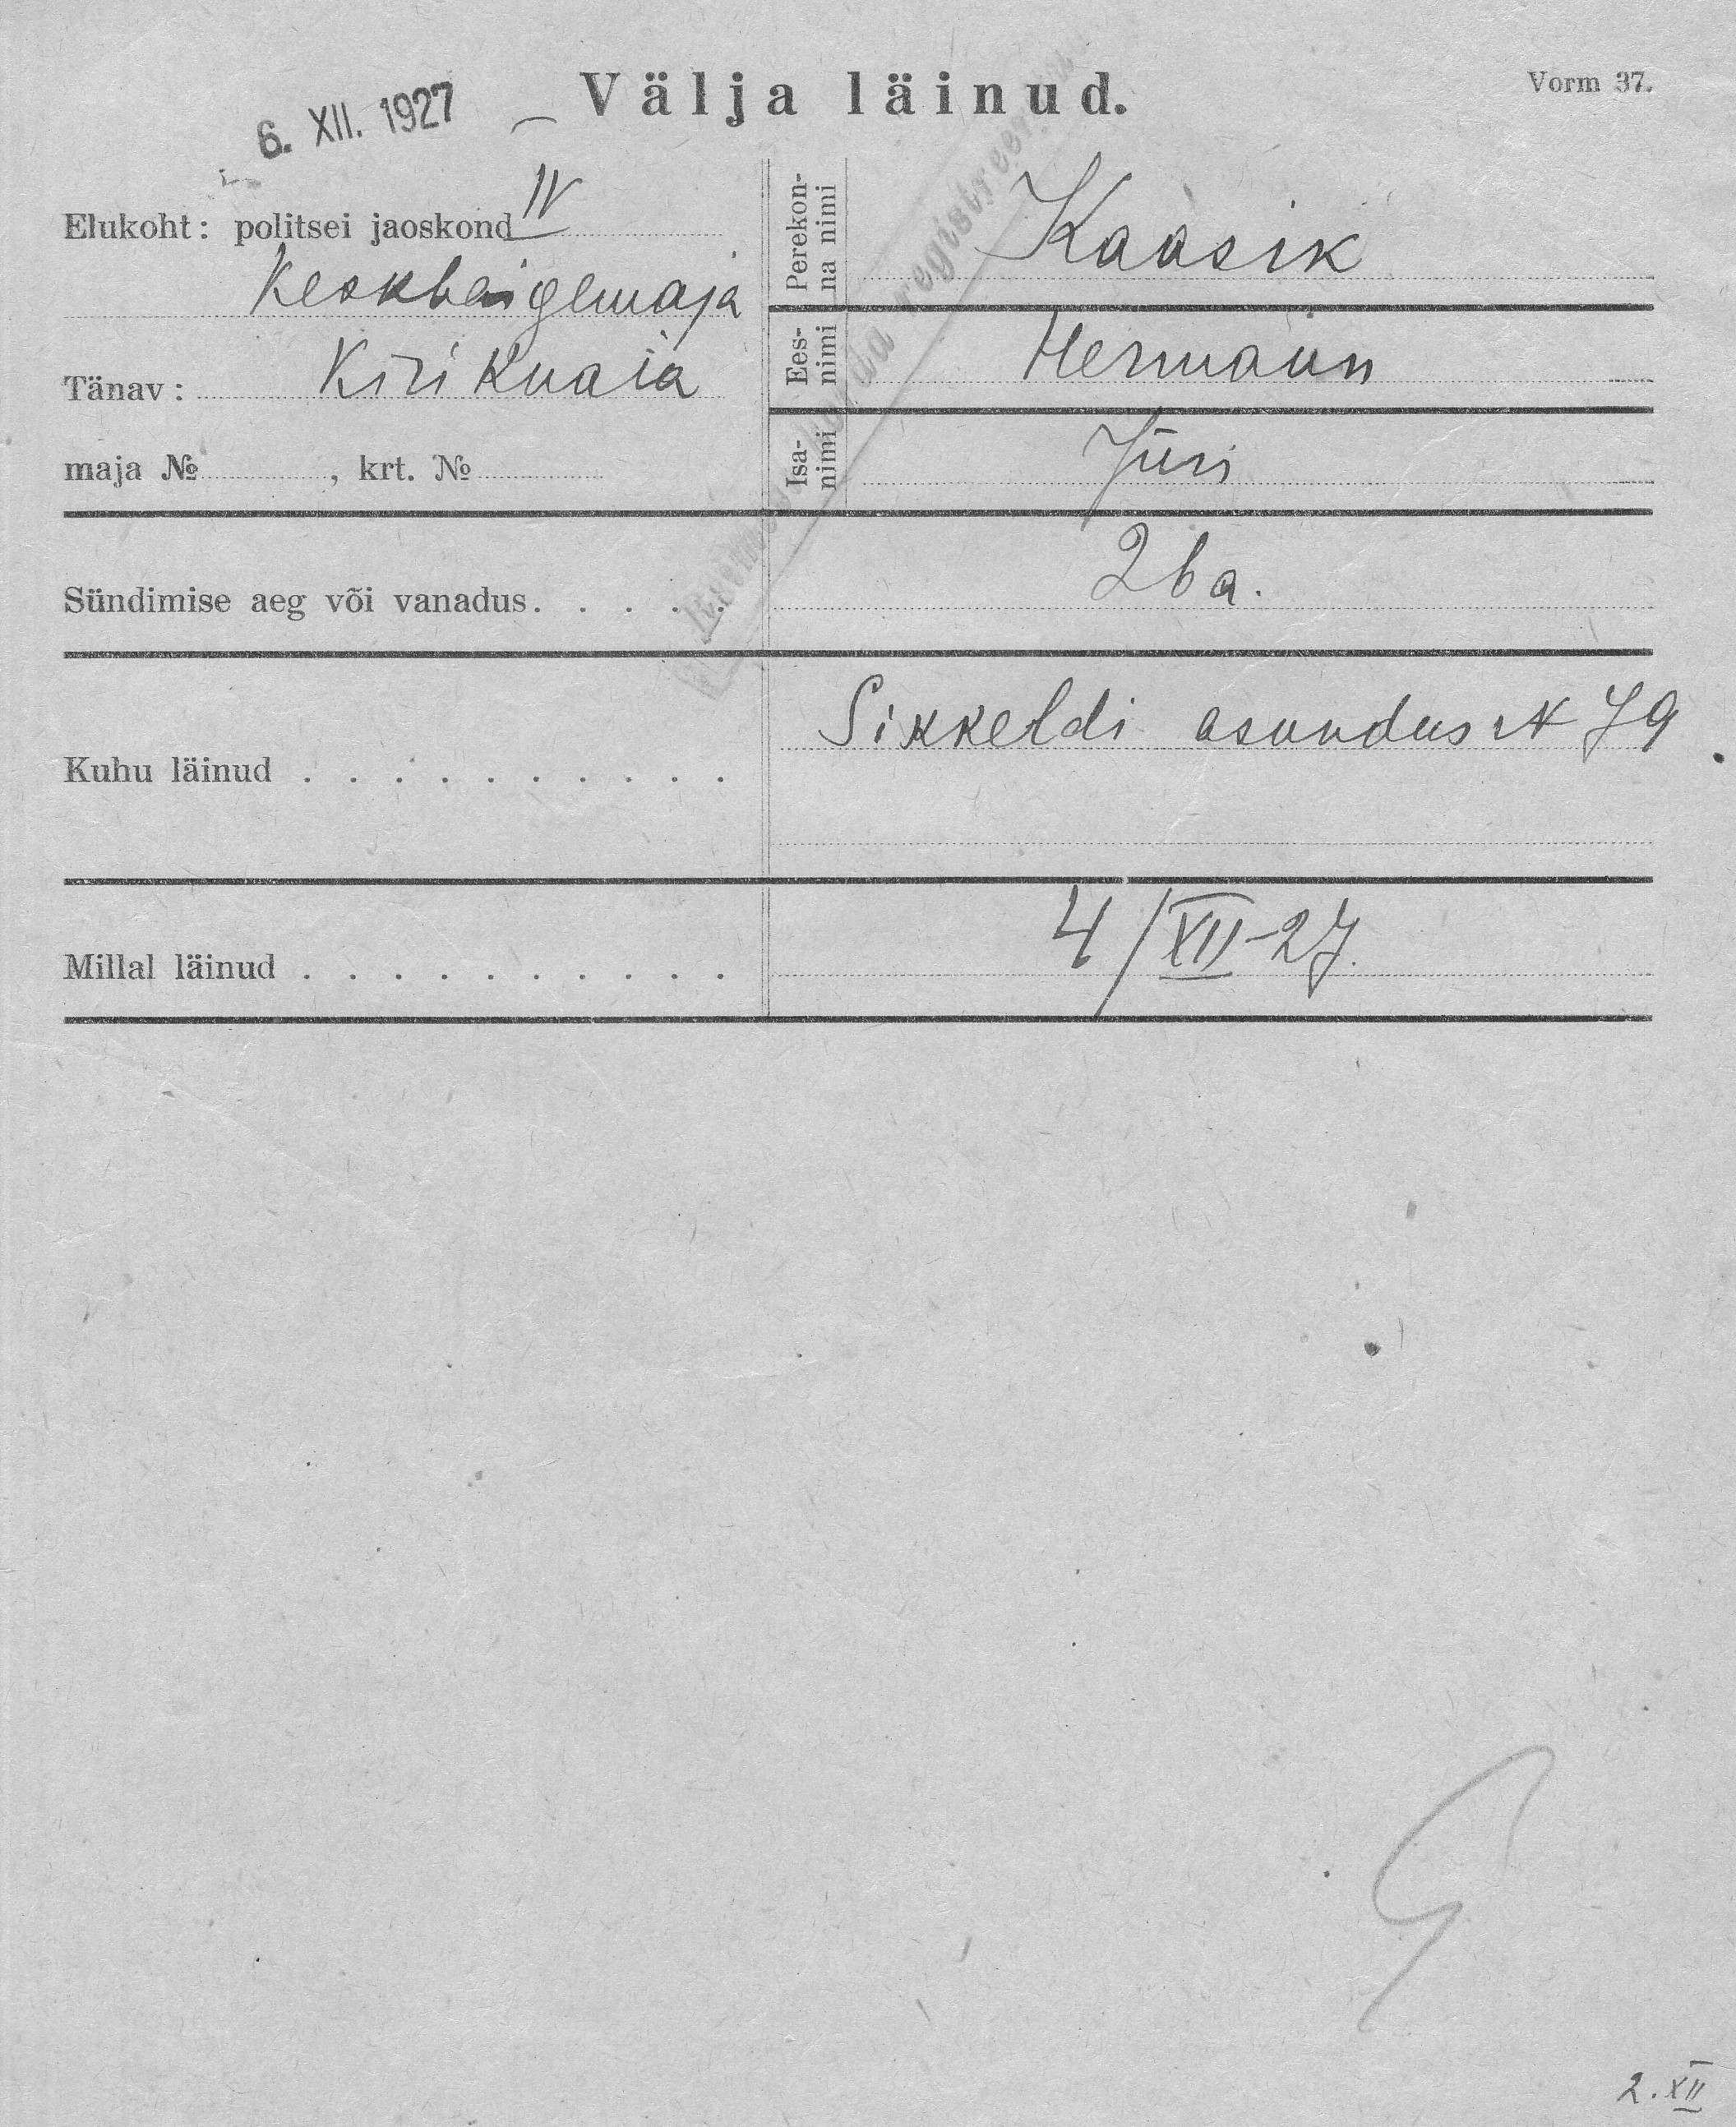 6. XII. 1927
Välja läinud.
Vorm 37.
Elukoht: politsei jaoskond IV
Keskhaigemaja
Tänav: Kirikuaia
maja №, krt. №
Perekonna nimi
Kaasik
Eesnimi
Hermann
Isanimi
Jüri
registreeritud
Sündimise aeg või vanadus
26 a.
Kuhu läinud
Sikkeldi asundus N 79
Millal läinud
4/XII-27.
2. XII